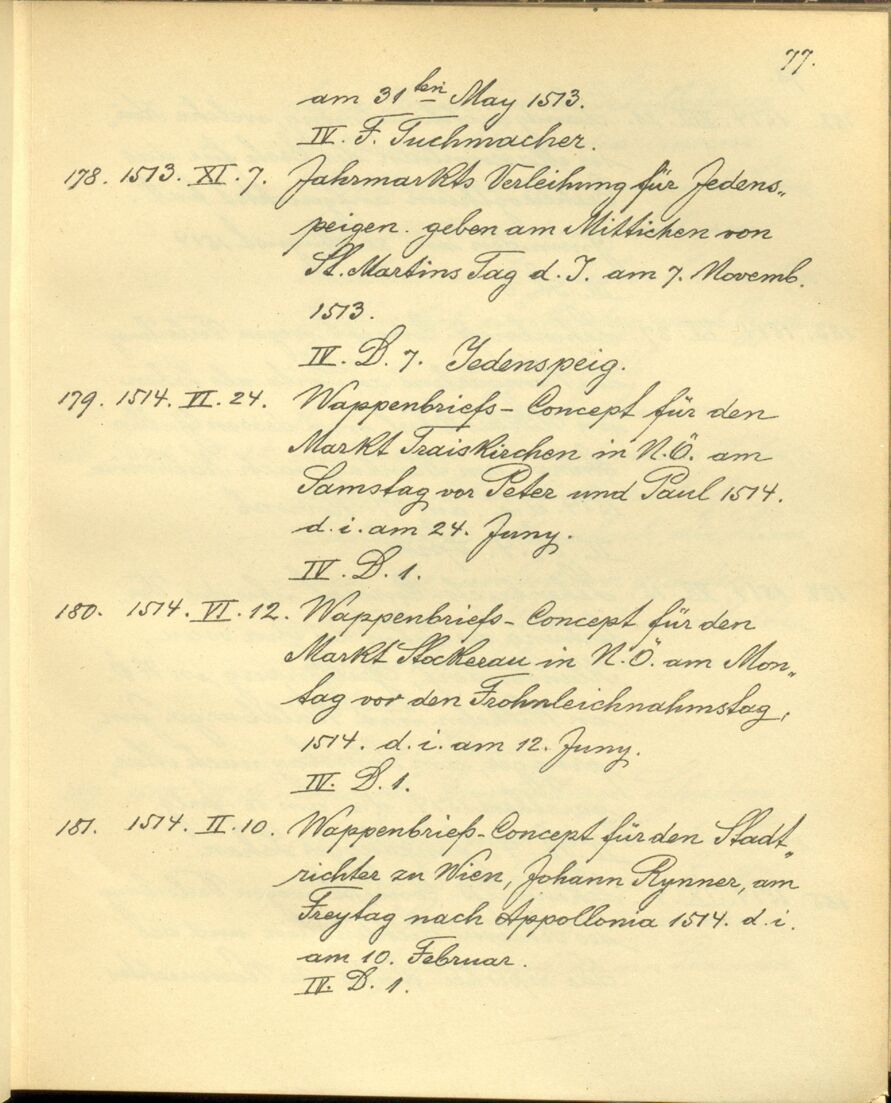 77.
am 31ten May 1513.
IV. F. Tuchmacher.
178. 1513. XI. 7. Jahrmarkts Verleihung für Jedens„
peigen. geben am Mittichen von
St. Martins Tag d. J. am 7. Novemb.
1513.
IV. D. 7. Jedenspeig.
179. 1514. VI. 24. Wappenbriefs-Concept für den
Markt Traiskirchen in N.Ö. am
Samstag vor Peter und Paul 1514.
d. i. am 24. Juny.
IV. D. 1.
180. 1514. VI. 12. Wappenbriefs-Concept für den
Markt Stockerau in N.Ö. am Mon„
tag vor den Frohnleichnahmstag,
1514. d. i. am 12. Juny.
IV. D. 1.
181. 1514. II. 10. Wappenbriefs-Concept für den Stadt„
richter zu Wien, Johann Rynner, am
Freytag nach Appollonia 1514. d. i.
am 10. Februar.
IV. D. 1.